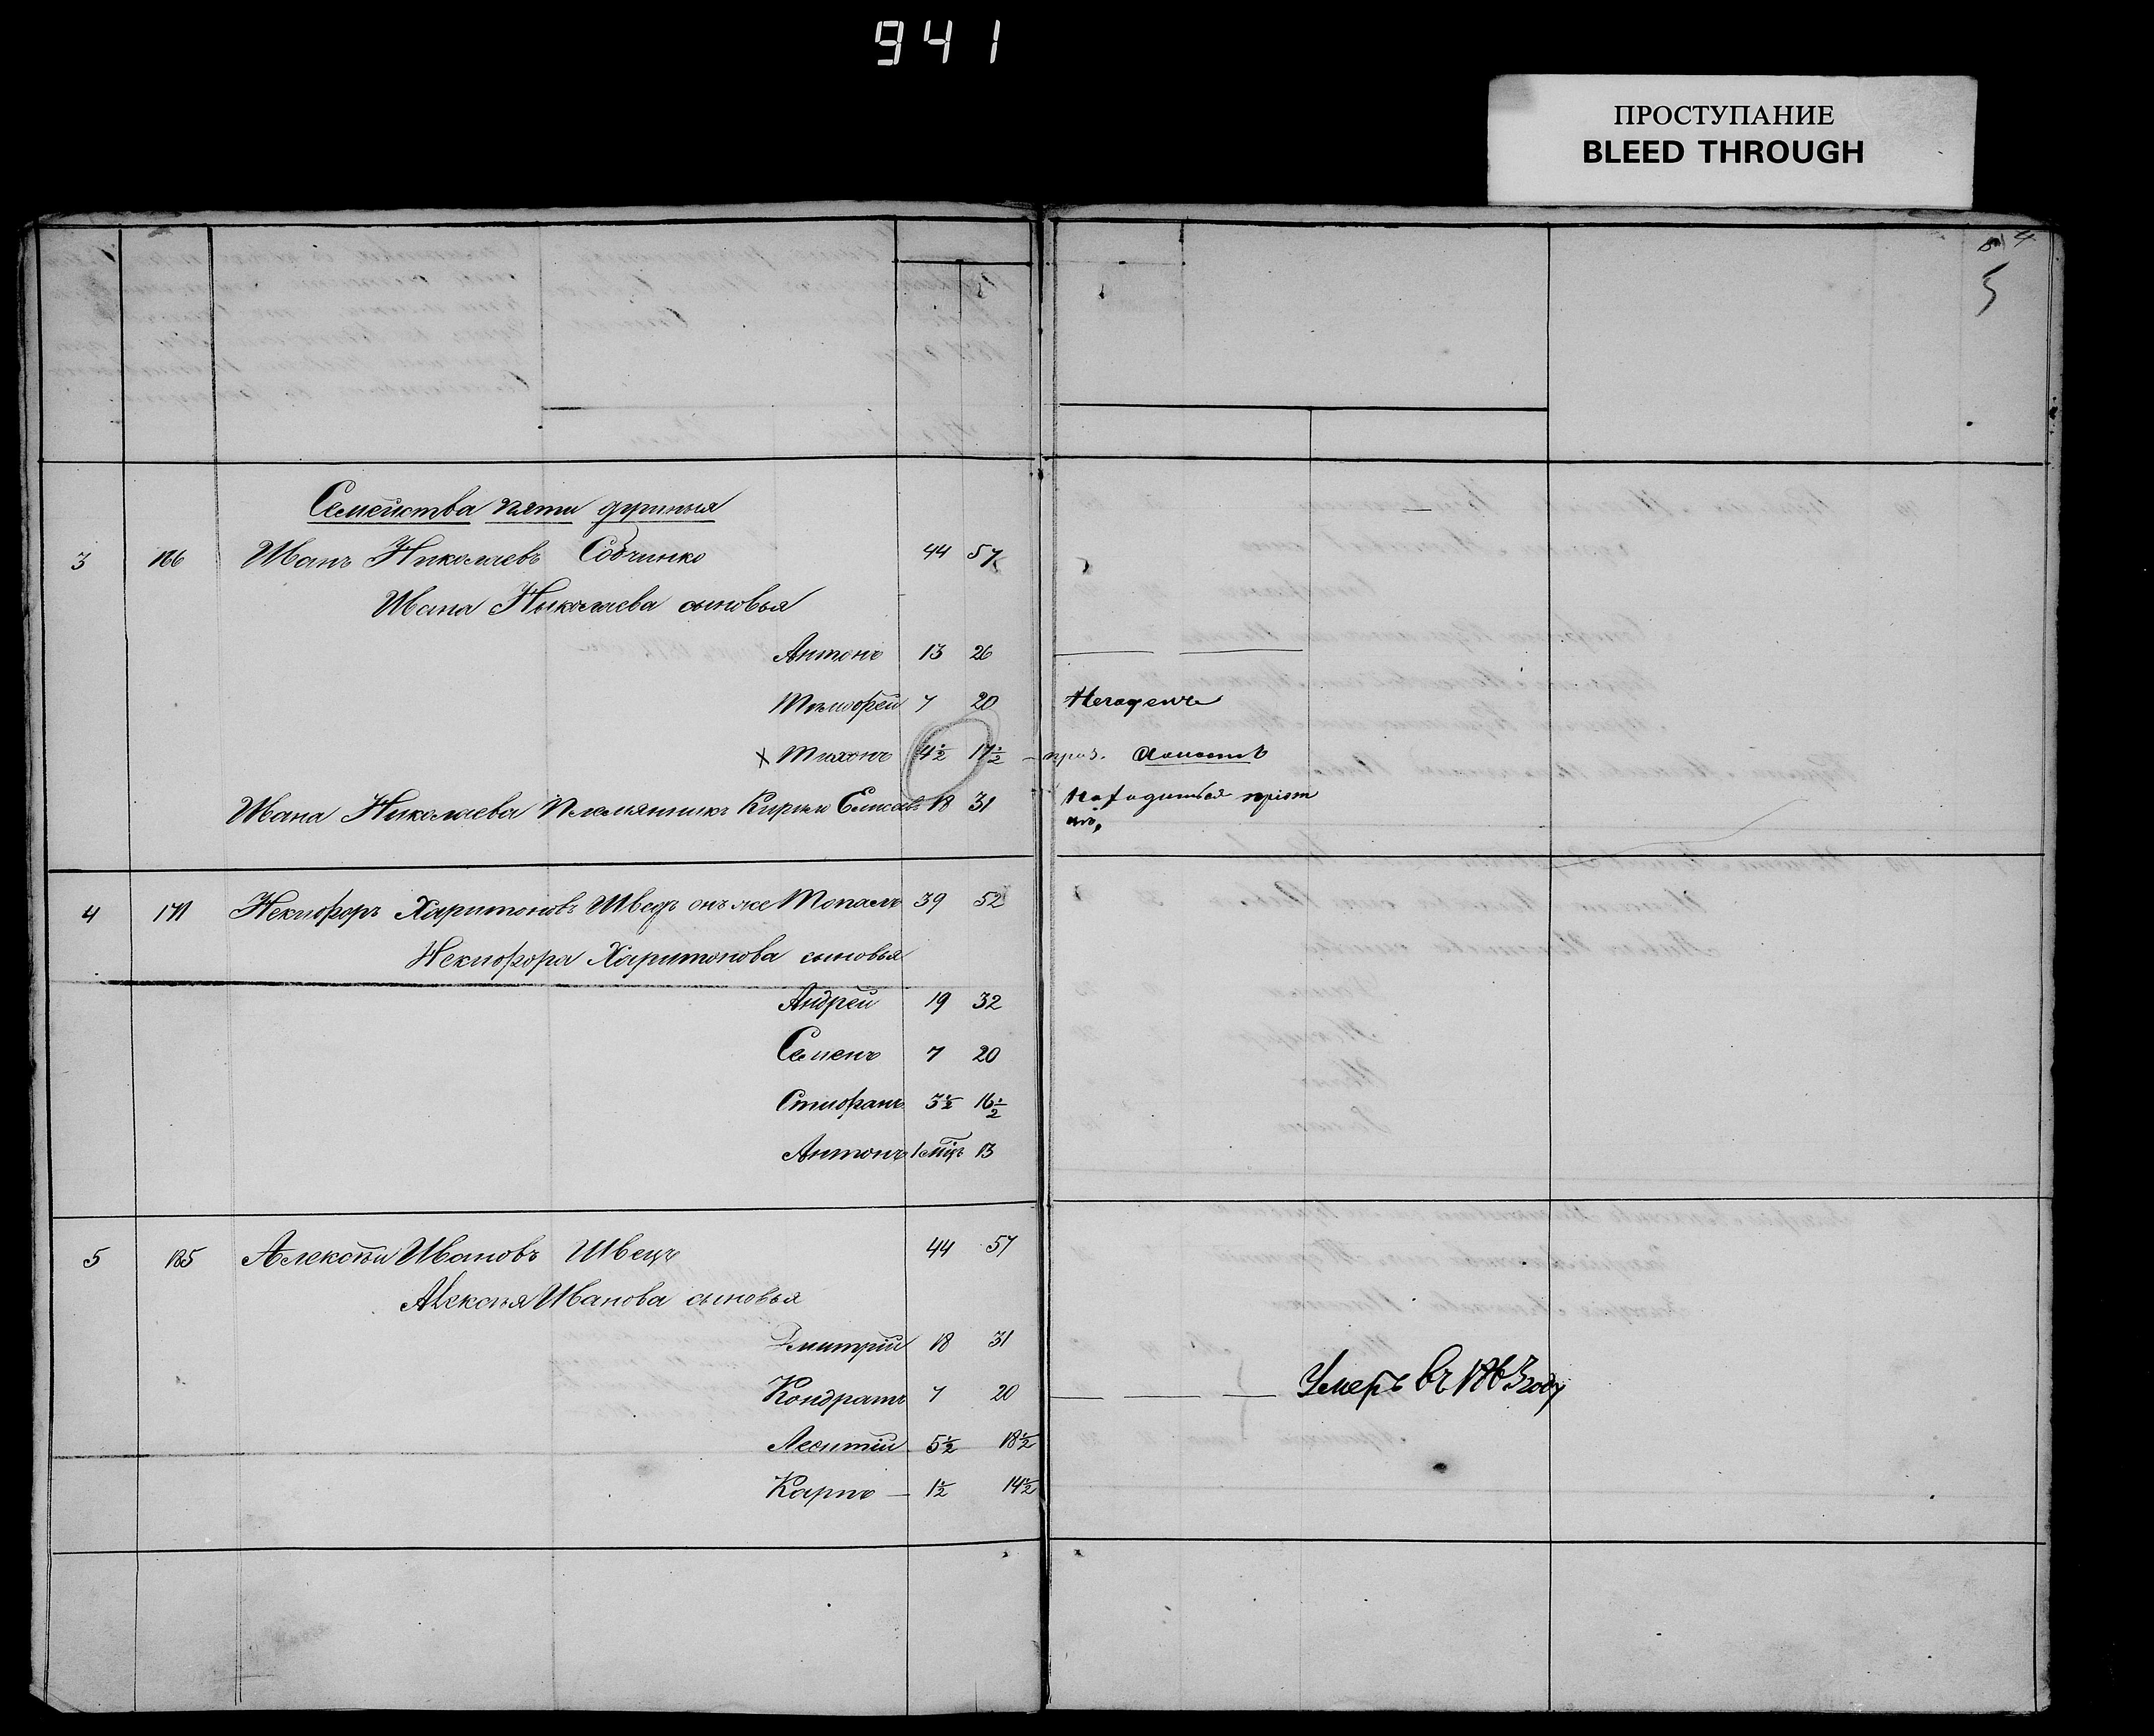 941
ПРОСТУПАНИЕ
BLEED THROUGH
4
5
Семейства пяти душныя
3 166 Иванъ Николаевъ Собчинко 44 57
Ивана Николаева сыновья
Антонъ 13 26
Тимофей 7 20 Негоденъ
х Тихонъ 4½ 17½
Ивана Николаева племянникъ Кирило Елисеевъ 18 31 Находиться пріом
4 171 Некиофоръ Харитоновъ Шведъ онъ же Топалъ 39 52
Некиофора Харитонова сыновья
Андрей 19 32
Семенъ 7 20
Стиофанъ 3½ 16½
Антонъ 1 мцъ 13
5 185 Алексѣй Ивановъ Швецъ 44 57
Алексѣя Иванова сыновья
Дмитрій 18 31
Кондратъ 7 20 Умеръ въ 1863 году
Леонтій 5½ 18½
Карпъ 1½ 14½